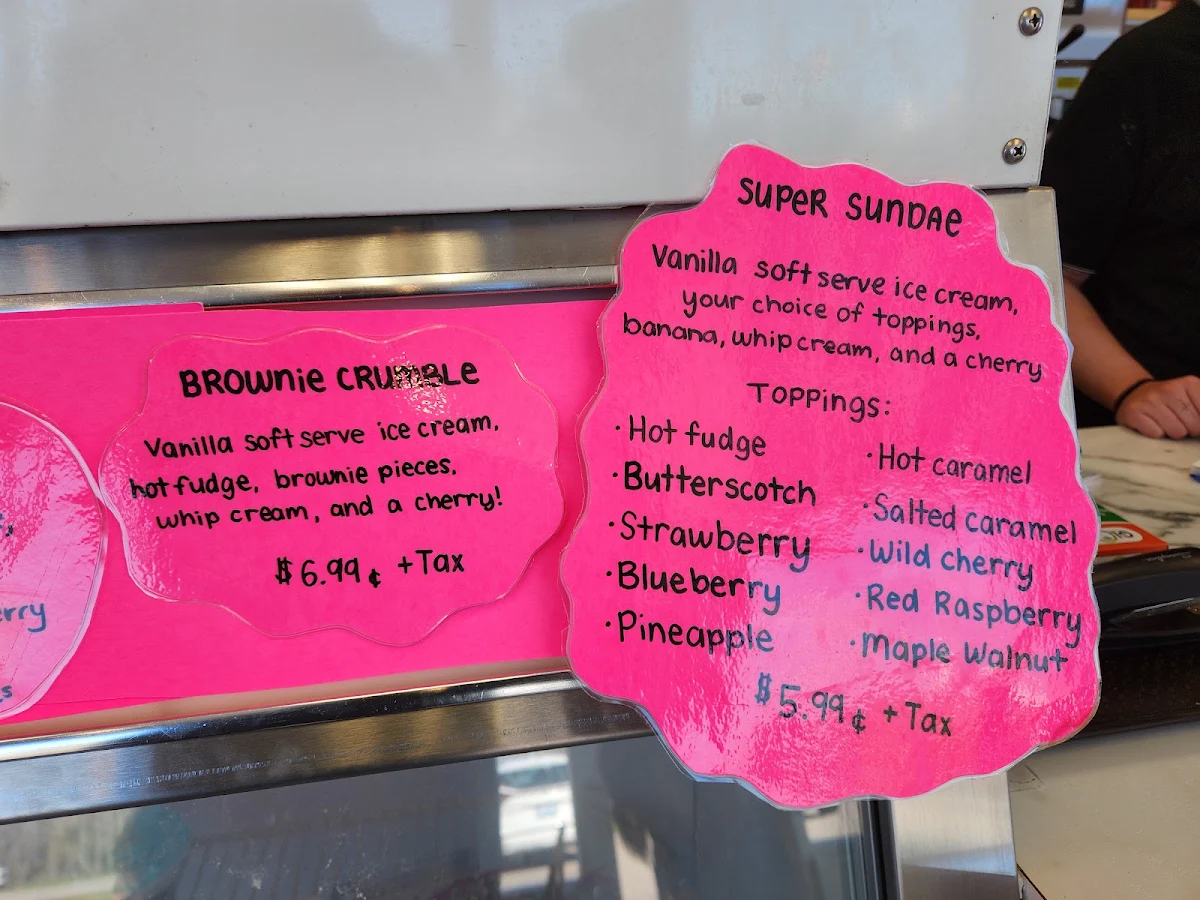 erry
BROWNIE CRUMBLE
Vanilla soft serve ice cream,
hot fudge, brownie pieces,
whip cream, and a cherry!
$6.99¢ +Tax
SUPER SUNDAE
Vanilla soft serve ice cream,
your choice of toppings,
banana, whip cream, and a cherry
Toppings:
·Hot fudge
·Butterscotch
·Strawberry
·Blueberry
·Pineapple
·Hot caramel
·Salted caramel
·Wild cherry
·Red Raspberry
·Maple Walnut
$5.99¢ +Tax